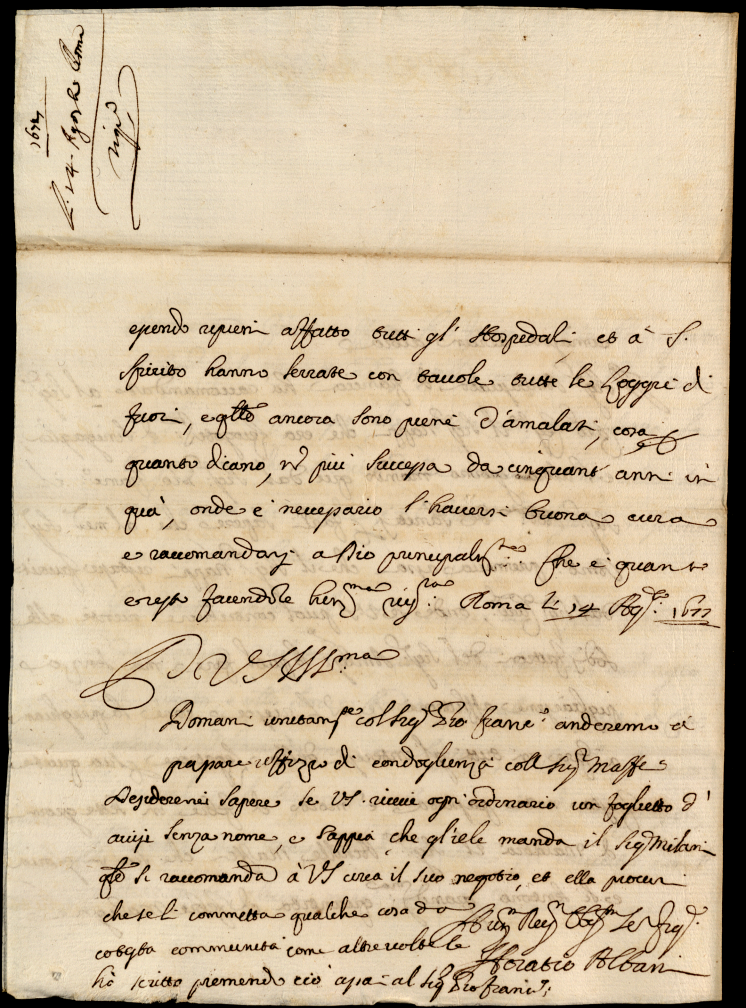 1677
Li 14 Agosto Roma
essendo ripieni affatto tutti gl' Hospedali, et à S.
Spirito hanno serrate con tavole tutte le Loggie di
fuori, e q.te ancora sono piene d'amalati, cosa
quanto dicano, nõ piu successa da cinquant' anni in
quà, onde è necessario l'haversi buona cura
e raccomandarsi a Dio principalm.te: che è quanto
e resto facendole hum.ma riv.za. Roma li 14 Ag.to 1677
D VS Ill.ma
Domani unitam.te col Sig.r Zio Franc.o anderemo à
passare uffizio di condoglienza coll Sig.r Maffe
Desidererei sapere se VS. riceve ogn' ordinario un foglietto d'
avvisi senza nome, e sappia che gliele manda il Sig.r Milani
q.le si raccomanda à VS circa il suo negotio, et ella procuri
che se li commetta qualche cosa da
cotesta communità come altre volte le
hò scritto premendo ciò assai al Sig.r Zio Franc.o:
Horatio Albani